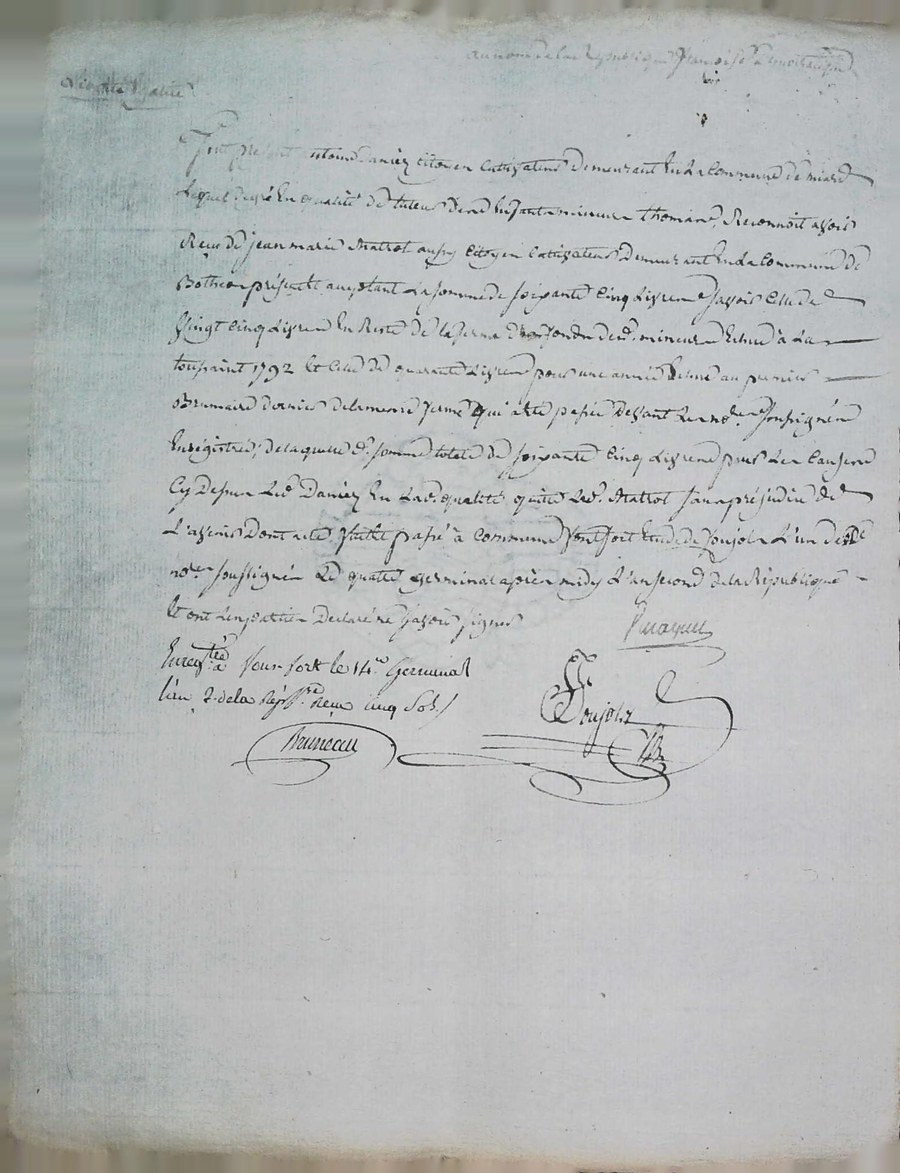 au nom de la République françoise
Liberté Egalité
fut présent antoine Daniez citoyen Cultivateur demeurant En La Commune de miard
Lequel de gré En qualité de tuteur des Enfants mineurs thomas, Reconnoit avoir
Reçu de jean marie Matrot aussy Citoyen Cultivateur Demeurant En La Commune de
Botheon présent acceptant La somme de soixante Cinq Livres savoir Celle de
Vingt Cinq Livres En Reste de la ferme des fonds des d. mineurs Echue à La
toussaint 1792 et Celle de quarante Livres pour une année Echue au premier
Brumaire dernier de la meme ferme qui a été passée devant Les no.res soussignés
Enrégistrée, de laquelle d. somme totale de soixante Cinq Livres pour Les Causes
Cy Dessus Led. Daniez En Lad. qualité quitte Led. Matrot sans préjudice de
L'avenir Dont acte fait et passé à Commune Montfort Etude de soujols L'un des
no.res soussignés Le quatre germinal après midy L'an second de la République
Et ont Les parties Declaré ne savoir signer
Enreg.tré à Montfort le 14.e Germinal
l'an 2. de la Rép. Reçu cinq Sols
Soujols
Bruneau